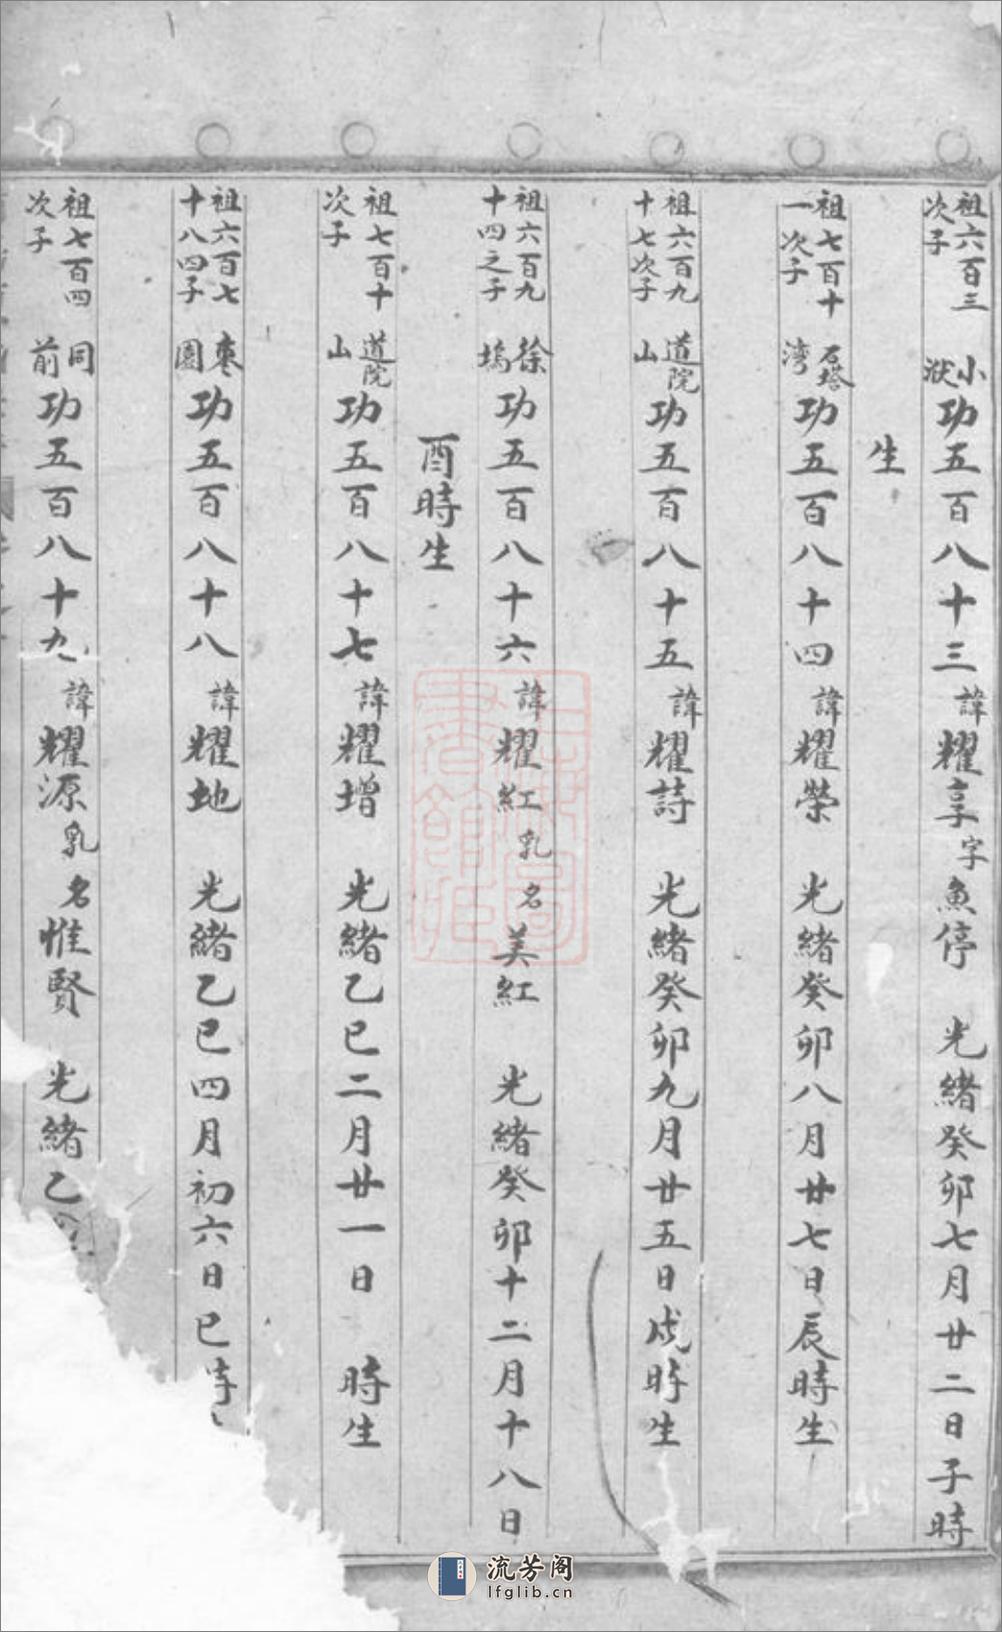 祖六百三次子 小洑 功五百八十三 諱耀享 字魚停 光緒癸卯七月廿二日子時
生
祖七百十一次子 石塔湾 功五百八十四 諱耀榮 光緒癸卯八月廿七日辰時生
祖六百九十七次子 道院山 功五百八十五 諱耀詩 光緒癸卯九月廿五日戌時生
祖六百九十四之子 徐塢 功五百八十六 諱耀紅 乳名美紅 光緒癸卯十二月十八日
酉時生
祖七百十次子 道院山 功五百八十七 諱耀增 光緒乙巳二月廿一日 時生
祖六百七十八四子 棗園 功五百八十八 諱耀地 光緒乙巳四月初六日巳時
祖七百四次子 同前 功五百八十九 諱耀源 乳名惟賢 光緒乙
流芳阁
lfglib.cn